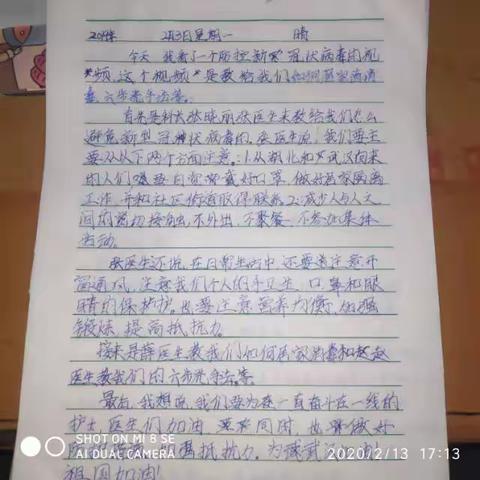 2月3日星期一 晴
今天我看了一个防控新冠状病毒的视
频,这个视频是教给我们如何居家消
毒,六步洗手法等。
首先是张医生来教给我们怎么
避免新型冠状病毒的。张医生说,我们要主
要从以下两个方面注意:1.从湖北和武汉回来
的人们,要自觉戴好口罩,做好居家隔离
工作,并和社区街道取得联系。2.减少人与人之
间的密切接触,不外出,不聚餐,不参加集体
活动。
张医生还说,在日常生活中,还要注意开
窗通风,注意我们个人的手卫生、口鼻和眼
睛的保护。也要注意营养均衡,加强
锻炼,提高抵抗力。
接来是薛医生教我们如何居家消毒和赵
医生教我们的六步洗手法等。
最后,我想说,我们要为在一直奋斗在一线的
护士医生们加油,同时,也要做好
高抵抗力。为武汉加油!
祖国加油!
SHOT ON MI 8 SE
AI DUAL CAMERA
2020/2/13 17:13